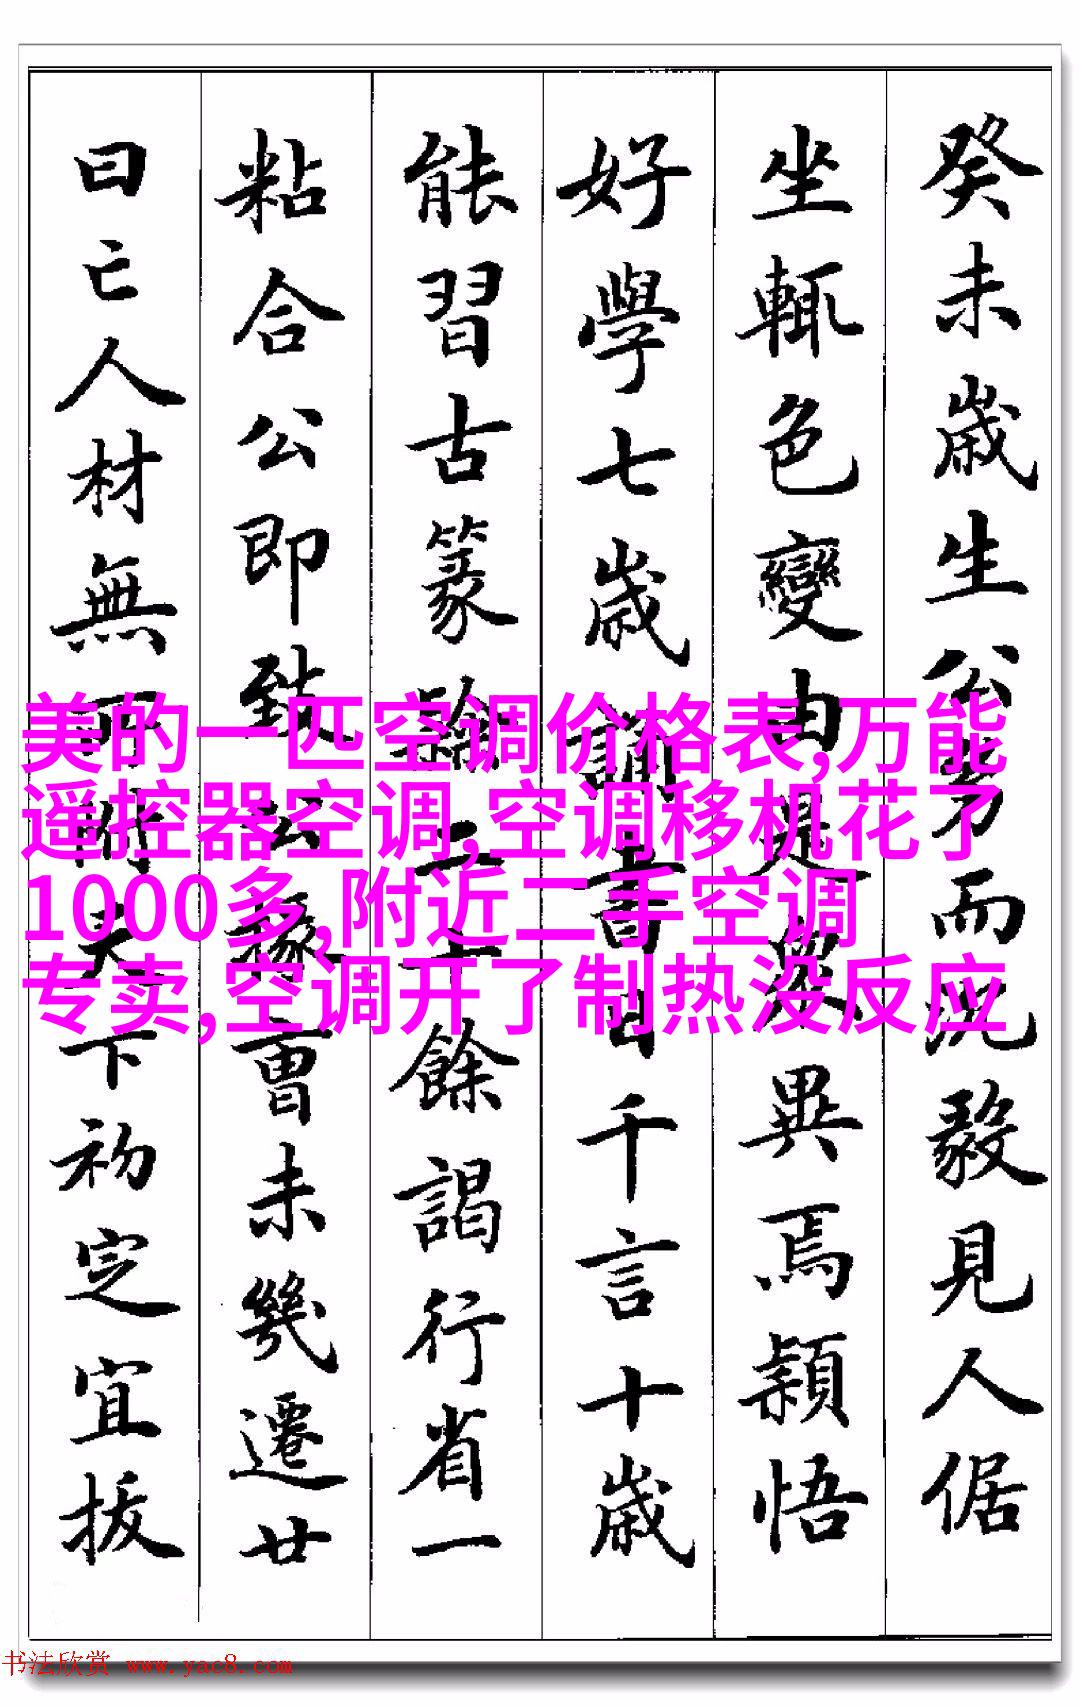 癸未歲生公而沉毅見人倨
坐輒色變由是眾異焉穎悟
好學七歲誦書日千言十歲
能習古篆籀二十餘謁行省一
粘合公即致公掾曹未幾遷廿
曰亡人材無附天下初定宜拔
美的一匹空调价格表,万能
遥控器空调,空调移机花了
1000多,附近二手空调
专卖,空调开了制热没反应
书法欣赏 www.yac8.com